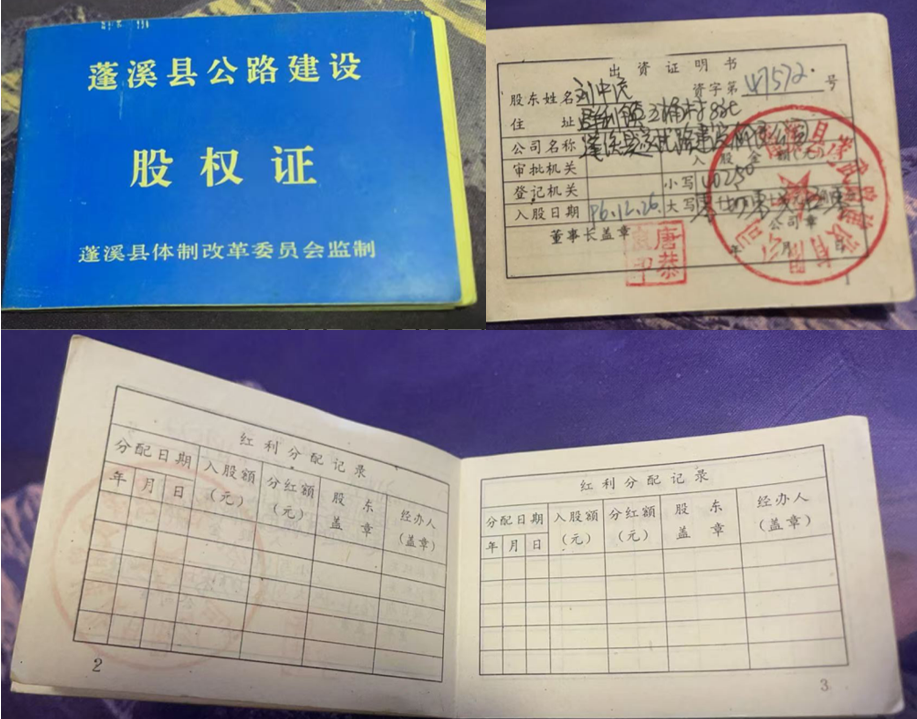 蓬溪县公路建设
股权证
蓬溪县体制改革委员会监制
出资证明书
股东姓名 刘中 资字第 47572 号
住址
公司名称 蓬溪县
审批机关 入股金额(元)
登记机关 小写 40250
入股日期 96.12.26. 大写
董事长盖章 公司章
年 月 日
唐恭
印
1
红利分配记录
分配日期 入股额(元) 分红额(元) 股东盖章 经办人(盖章)
年 月 日
2
红利分配记录
分配日期 入股额(元) 分红额(元) 股东盖章 经办人(盖章)
年 月 日
3